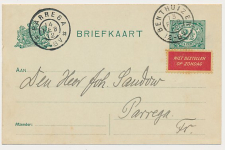 PARREGA
BRIEFKAART
BENTHUIZEN
NIET BESTELLEN
OP ZONDAG
Den Heer Joh. Sandow
Parrega
Fr.